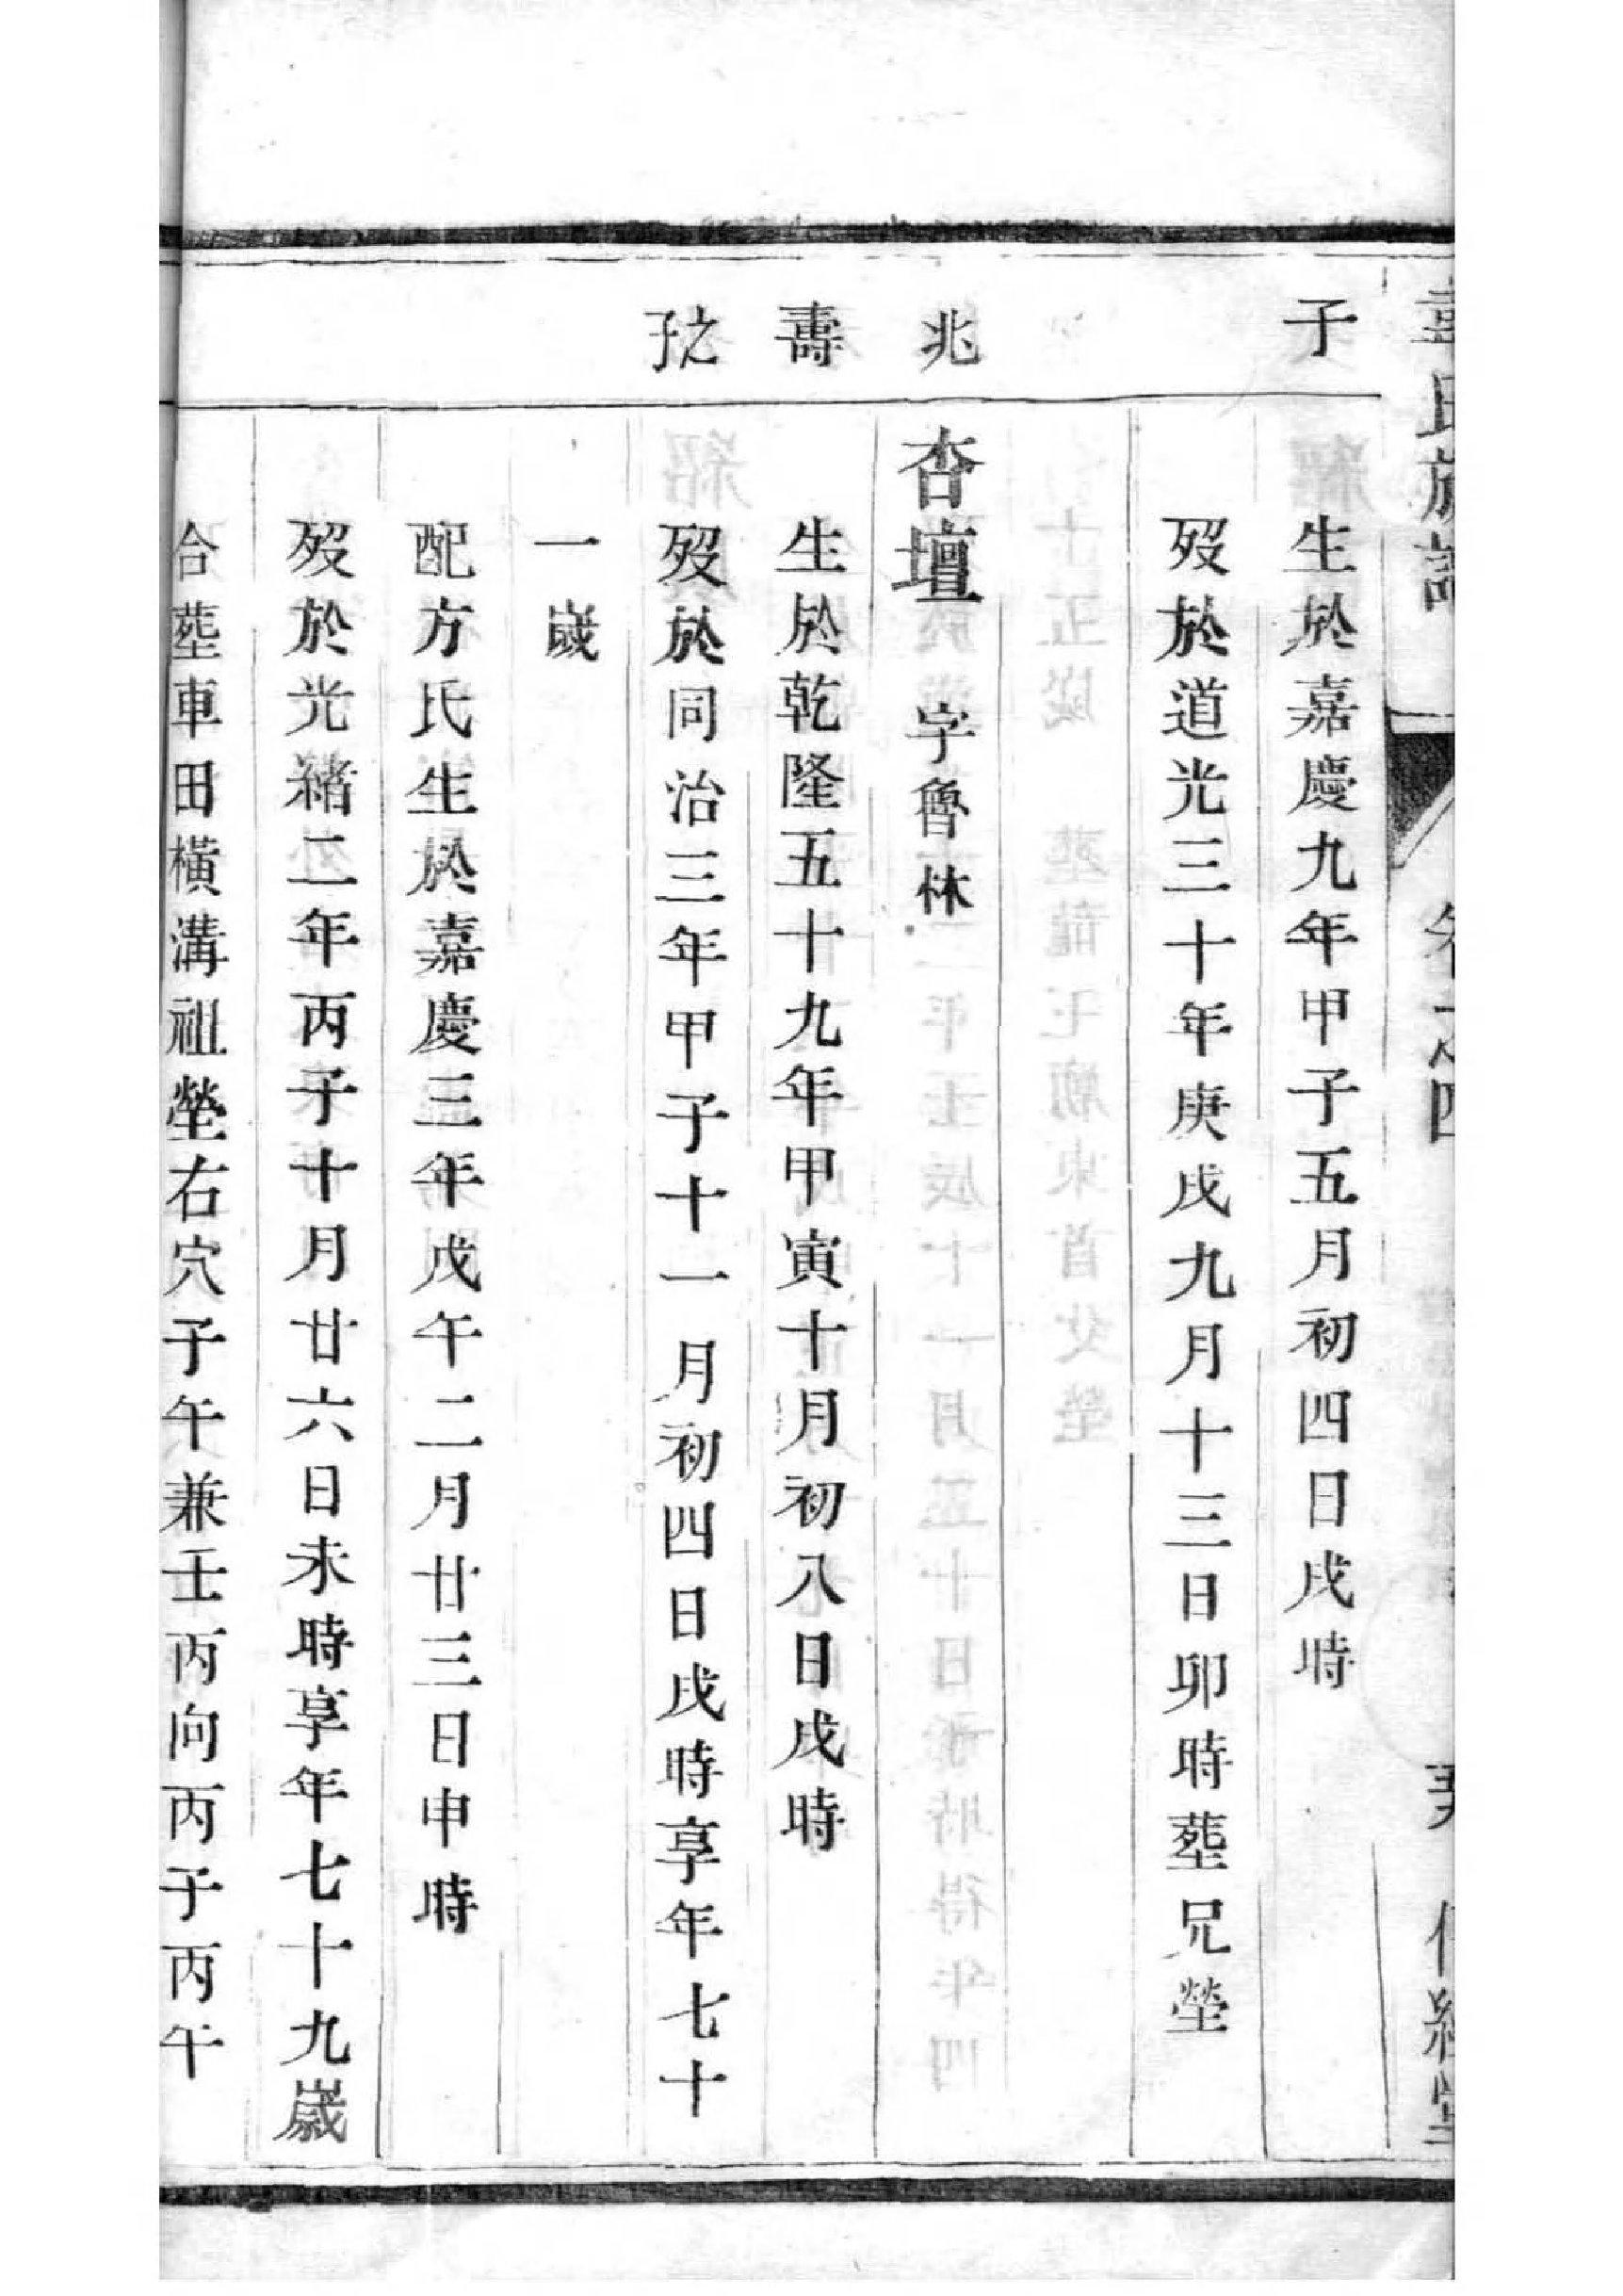 氏族譜 卷之四 傳經堂
子
生於嘉慶九年甲子五月初四日戌時
歿於道光三十年庚戌九月十三日卯時葬兄塋
兆
杏壇 字魯林
壽
生於乾隆五十九年甲寅十月初八日戌時
之子
歿於同治三年甲子十一月初四日戌時享年七十
一歲
配方氏生於嘉慶三年戊午二月廿三日申時
歿於光緒二年丙子十月廿六日未時享年七十九歲
合葬車田橫溝祖塋右穴子午兼壬丙向丙子丙午